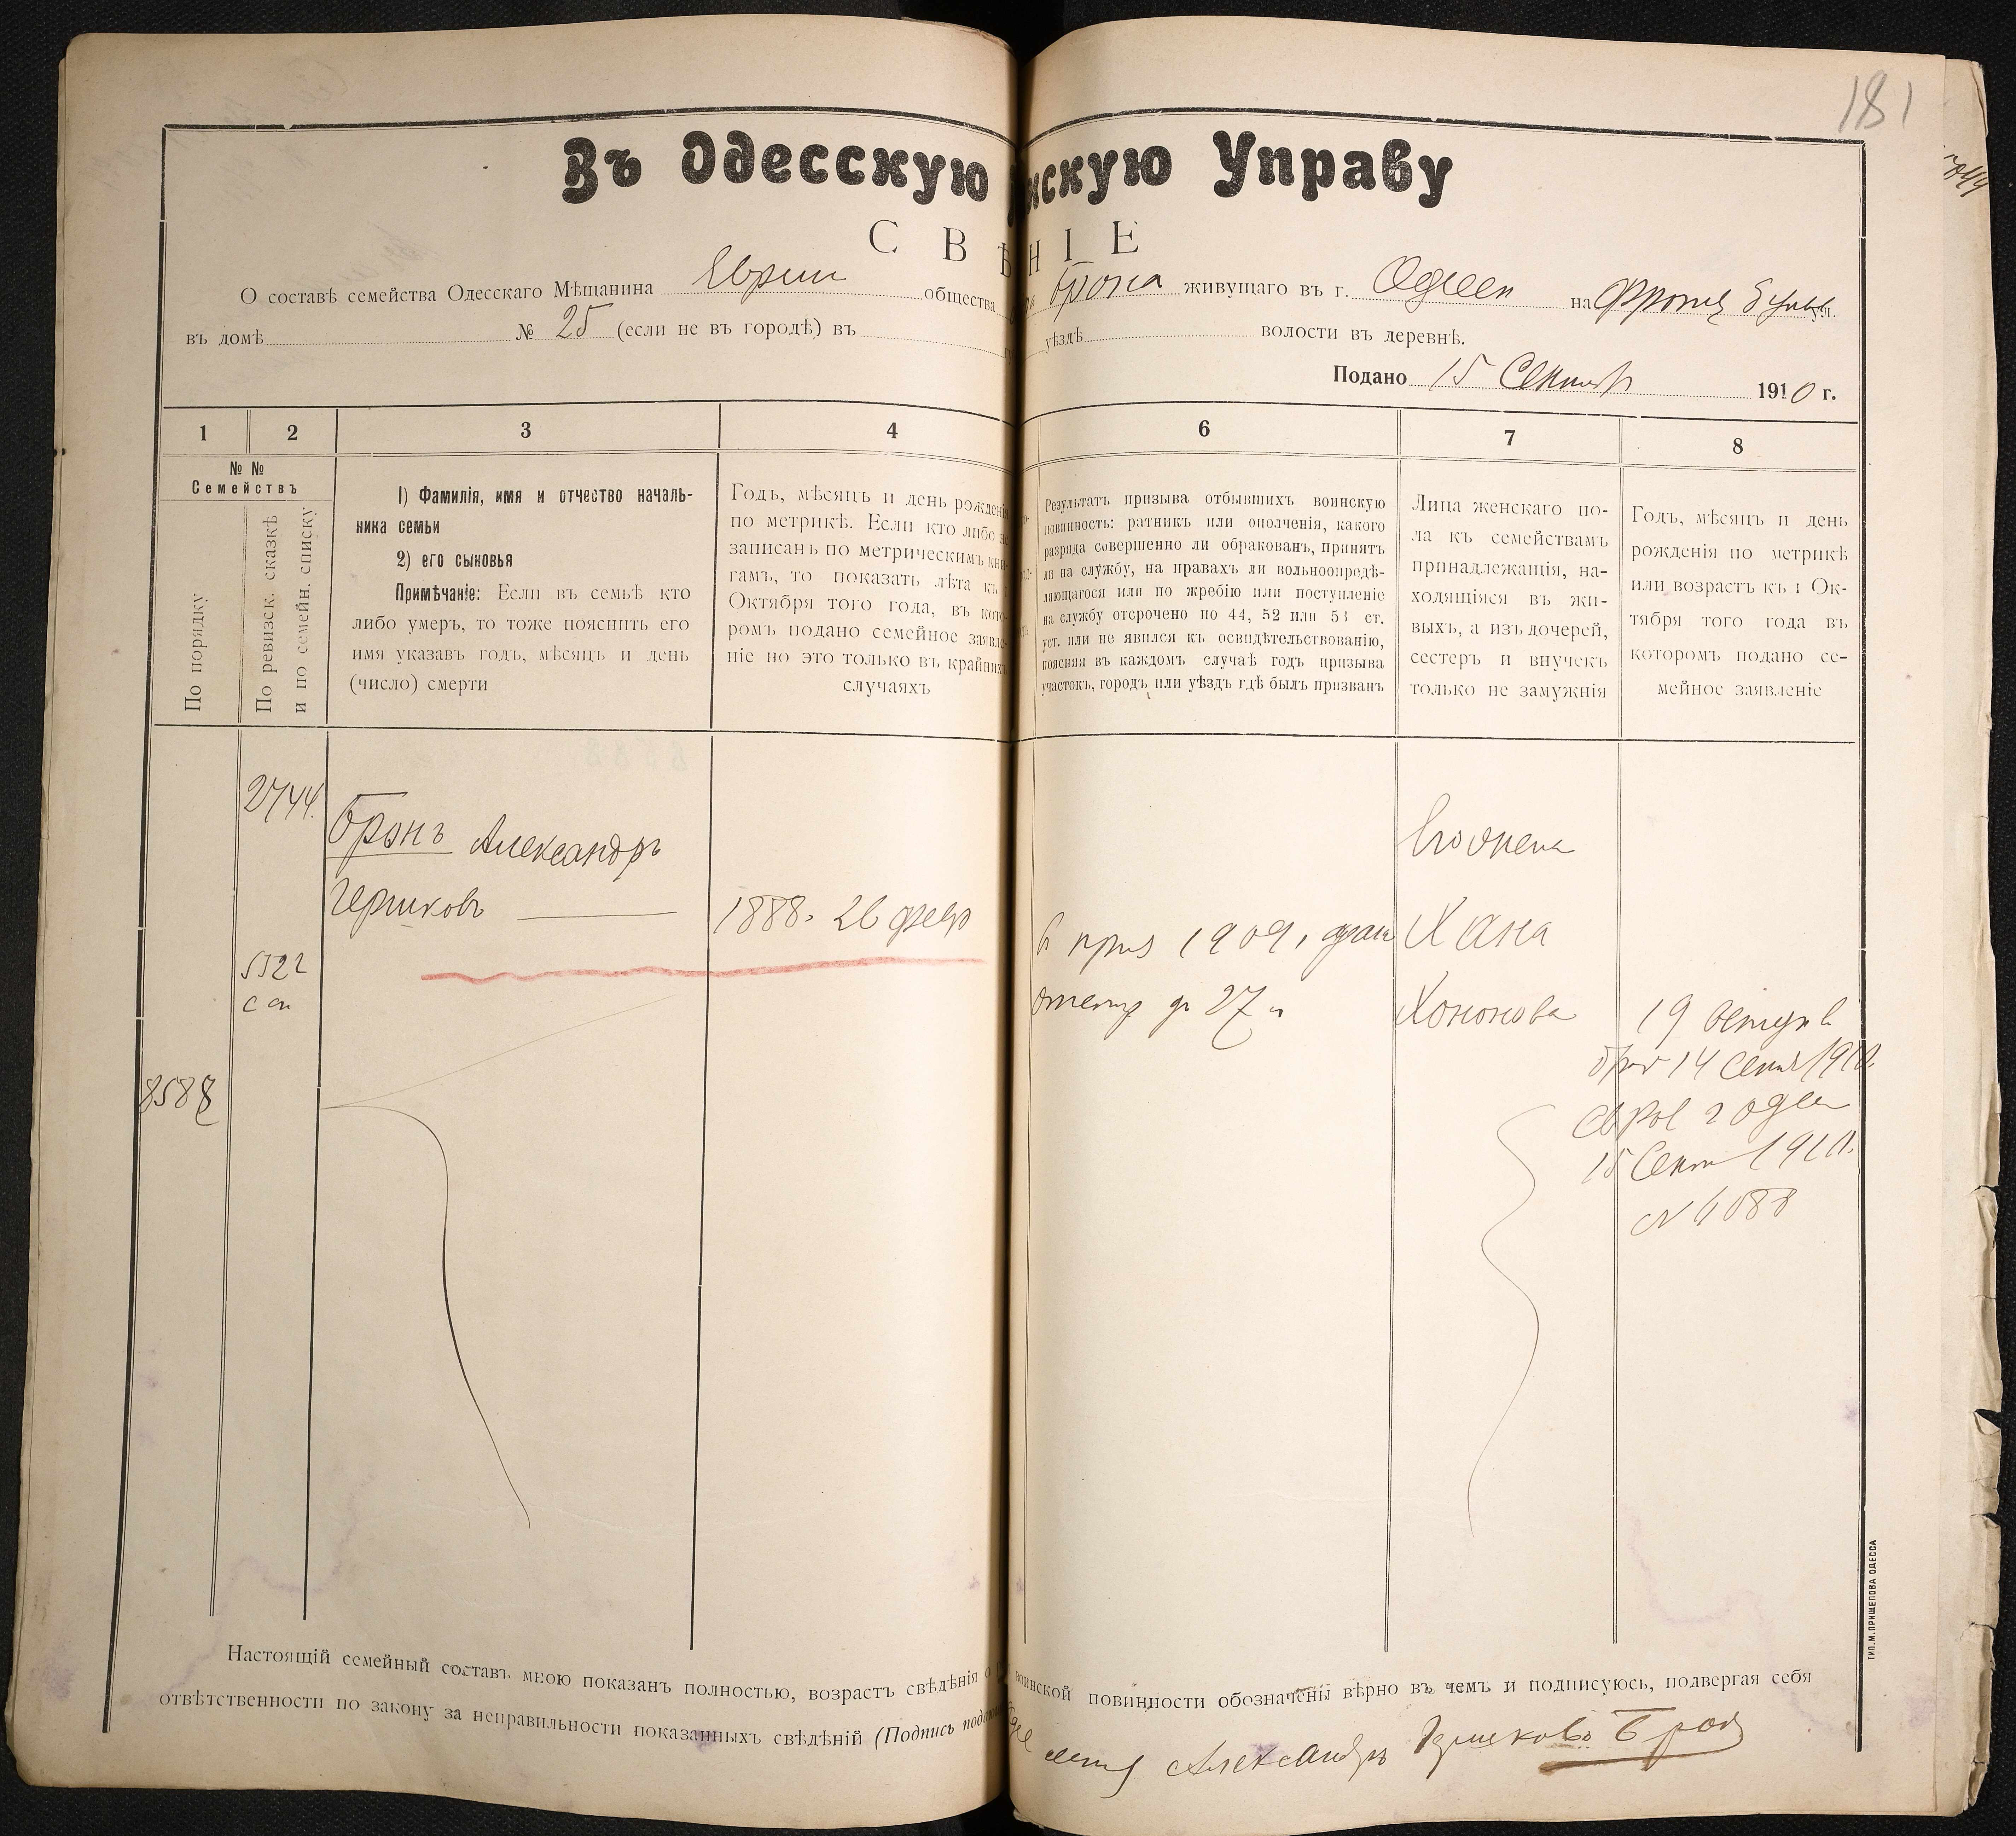 181
Въ Одесскую нскую Управу
С В Ѣ Н І Е
О составѣ семейства Одесскаго Мѣщанина общества Брона живущаго въ г. Одессе на Франц бульв ул.
въ домѣ № 25 (если не въ городѣ) въ уѣздѣ волости въ деревнѣ.
Подано 15 Сентяб 1910 г.
1 2 3 4 6 7 8
№ №
Семействъ
По порядку
По ревизск. сказкѣ
и по семейн. списку
1) Фамилія, имя и отчество началь-
ника семьи
2) его сыновья
Примѣчаніе: Если въ семьѣ кто
либо умеръ, то тоже пояснить его
имя указавъ годъ, мѣсяцъ и день
(число) смерти
Годъ, мѣсяцъ и день рожденія
по метрикѣ. Если кто либо не
записанъ по метрическимъ кни-
гамъ, то показать лѣта къ 1
Октября того года, въ кото-
ромъ подано семейное заявле-
ніе но это только въ крайнихъ
случаяхъ
Результатъ призыва отбывшихъ воинскую
повинность: ратникъ или ополченія, какого
разряда совершенно ли обракованъ, принятъ
ли на службу, на правахъ ли вольноопредѣ-
ляющагося или по жребію или поступленіе
на службу отсрочено по 44, 52 или 53 ст.
уст. или не явился къ освидѣтельствованію,
поясняя въ каждомъ случаѣ годъ призыва
участокъ, городъ или уѣздъ гдѣ былъ призванъ
Лица женскаго по-
ла къ семействамъ
принадлежащія, на-
ходящіяся въ жи-
выхъ, а изъ дочерей,
сестеръ и внучекъ
только не замужнія
Годъ, мѣсяцъ и день
рожденія по метрикѣ
или возрастъ къ 1 Ок-
тября того года въ
которомъ подано се-
мейное заявленіе
2744.
Бронъ Александръ
Его жена
Гершковъ
1888. 26 февр
в приз 1909,
Хана
до 27
Хононова
19
14 Сент 1910.
15 Сент 1910.
N 4088
Настоящій семейный составъ мною показанъ полностью, возрастъ свѣдѣнія о воинской повинности обозначены вѣрно въ чемъ и подписуюсь, подвергая себя
отвѣтственности по закону за неправильности показанныхъ свѣдѣній (Подпись
Александръ Гершковъ Брон
ТИП. М. ПРИЩЕПОВА ОДЕССА